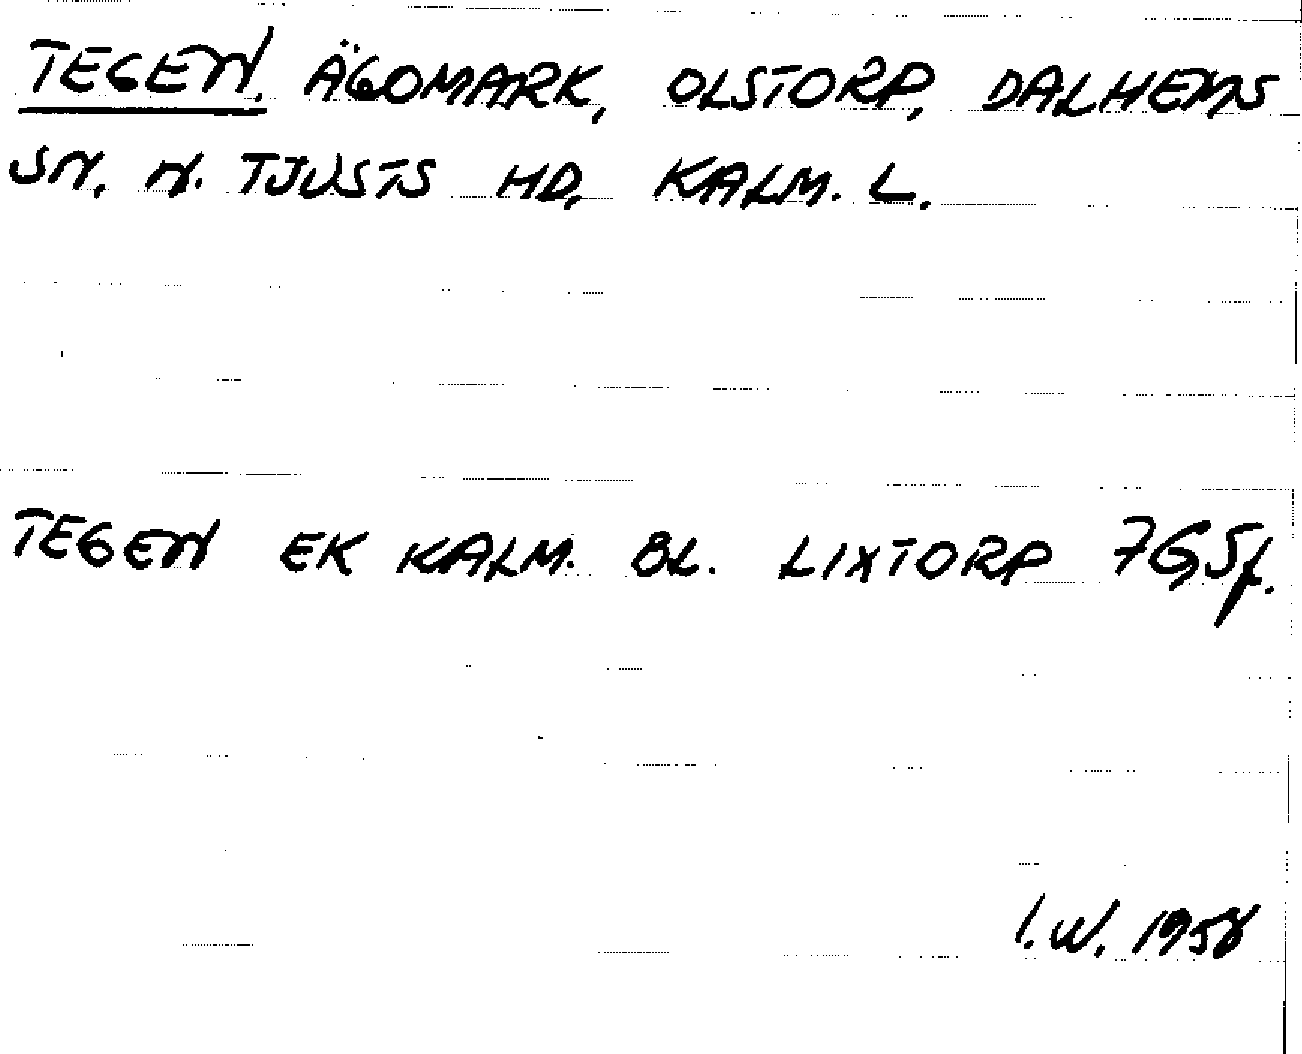 TEGEN, ÄGOMARK, OLSTORP, DALHEMS
SN, N. TJUSTS HD, KALM. L.
TEGEN EK KALM. BL. LIXTORP 7G5f.
I.W. 1958